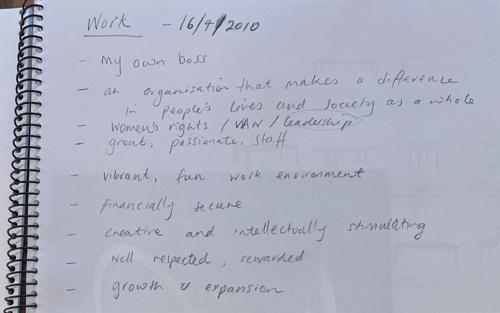 Work - 16/4/2010
- My own boss
- an organisation that makes a difference
in people's lives and society as a whole
- Women's rights / VAW / leadership
- great, passionate, staff
- vibrant, fun work environment
- financially secure
- creative and intellectually stimulating
- well respected, rewarded
- growth & expansion.